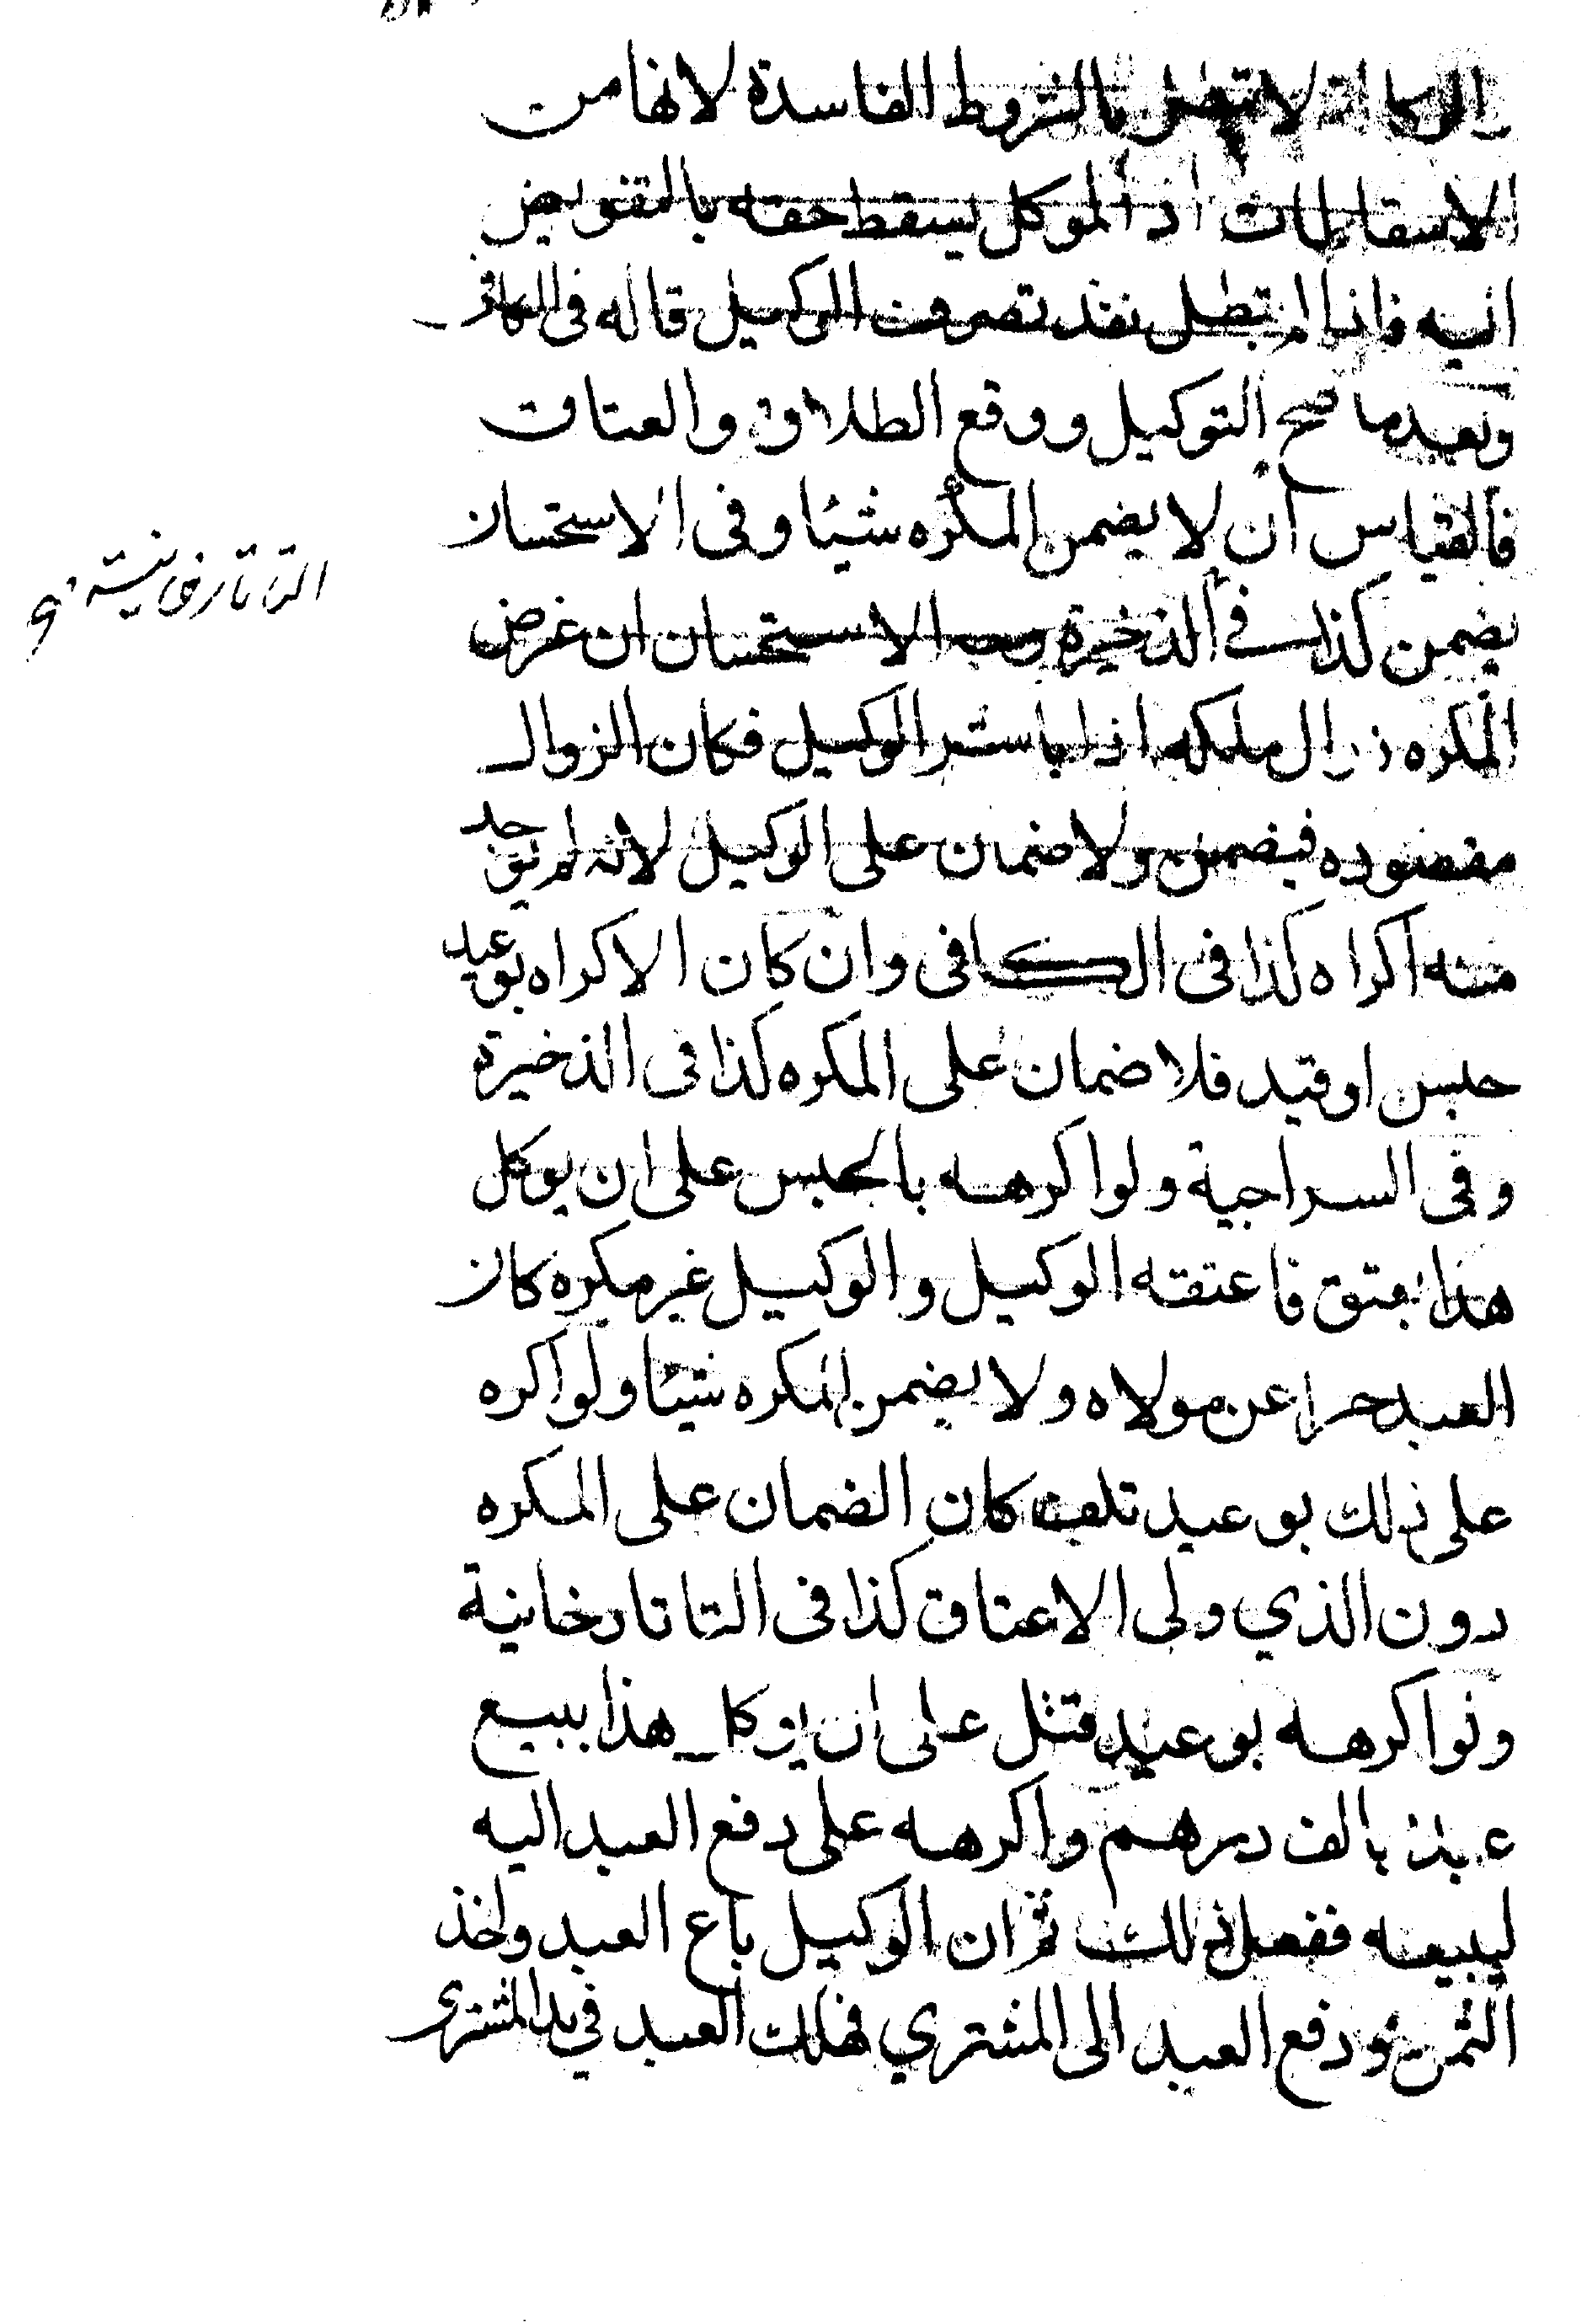 الوكالة لا تبطل بالشروط الفاسدة لانها من
الاسقاطات اذ الموكل يسقط حقه بالتفويض
اليه فاذا لم تبطل نفذ تصرف الوكيل قاله في الكافي
وبعدما صح التوكيل ووقع الطلاق والعتاق
فالقياس ان لا يضمن المكره شيئا وفى الاستحسان
يضمن كذا في الذخيرة وجه الاستحسان ان غرض
المكره زوال ملكه اذا باشر الوكيل فكان الزوال
مقصوده فيضمن ولا ضمان على الوكيل لانه لم يوجد
منه اكراه كذا فى الكافى وان كان الاكراه بوعيد
حبس او قيد فلا ضمان على المكره كذا فى الذخيرة
وفى السراجية ولو اكرهه بالحبس على ان يوكل
هذا بعتق فاعتقه الوكيل والوكيل غير مكره كان
العبد حرا عن مولاه ولا يضمن المكره شيئا ولو اكره
على ذلك بوعيد تلف كان الضمان على المكره
دون الذي ولى الاعتاق كذا فى التاتارخانية
ولو اكرهه بوعيد قتل على ان يوكل هذا ببيع
عبده بالف درهم واكرهه على دفع العبد اليه
ليبيعه ففعل ذلك ثم ان الوكيل باع العبد واخذ
الثمن ودفع العبد الى المشتري فهلك العبد في يد المشترى
التاتارخانية